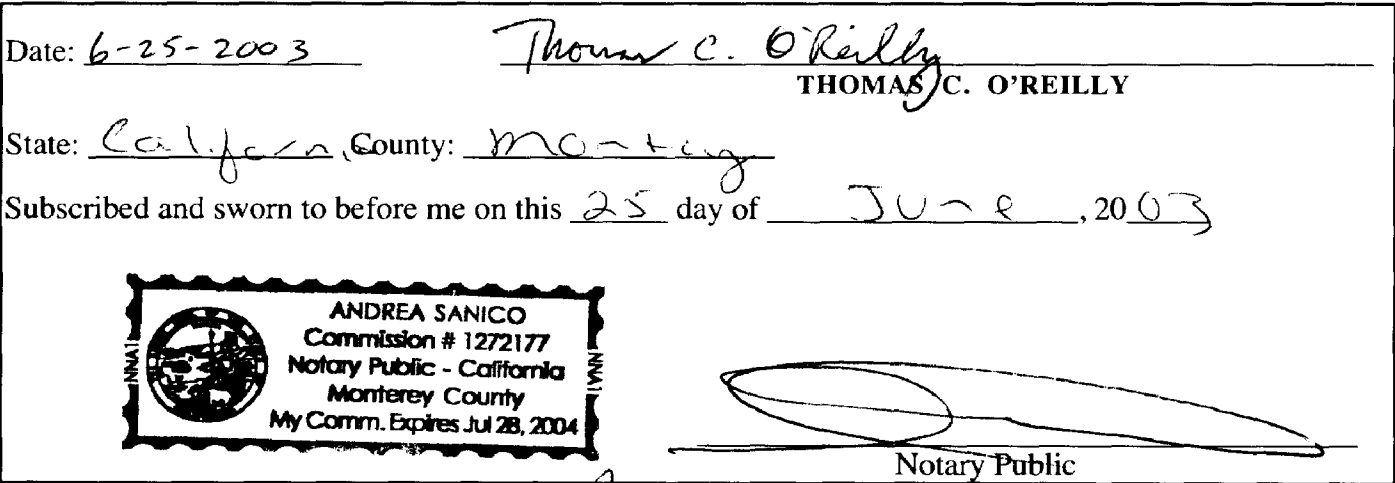 Date: 6-25-2003 Thomas C. O'Reilly
THOMAS C. O'REILLY
State: California County: Monterey
Subscribed and sworn to before me on this 25 day of June, 2003
ANDREA SANICO
Commission # 1272177
Notary Public - California
Monterey County
My Comm. Expires Jul 28, 2004
NNA1
NNA1
Notary Public